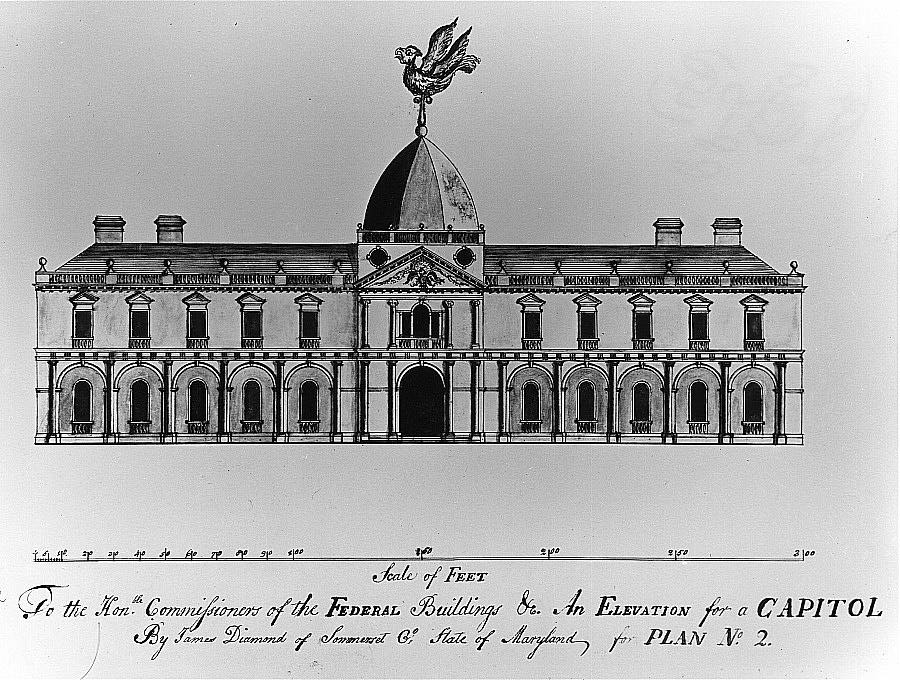 5 10 20 30 40 50 60 70 80 90 100 150 200 250 300
Scale of FEET
To the Hon.ble Commissioners of the FEDERAL Buildings &c. An ELEVATION for a CAPITOL
By James Diamond of Sommerset Co. State of Maryland, for PLAN No. 2.